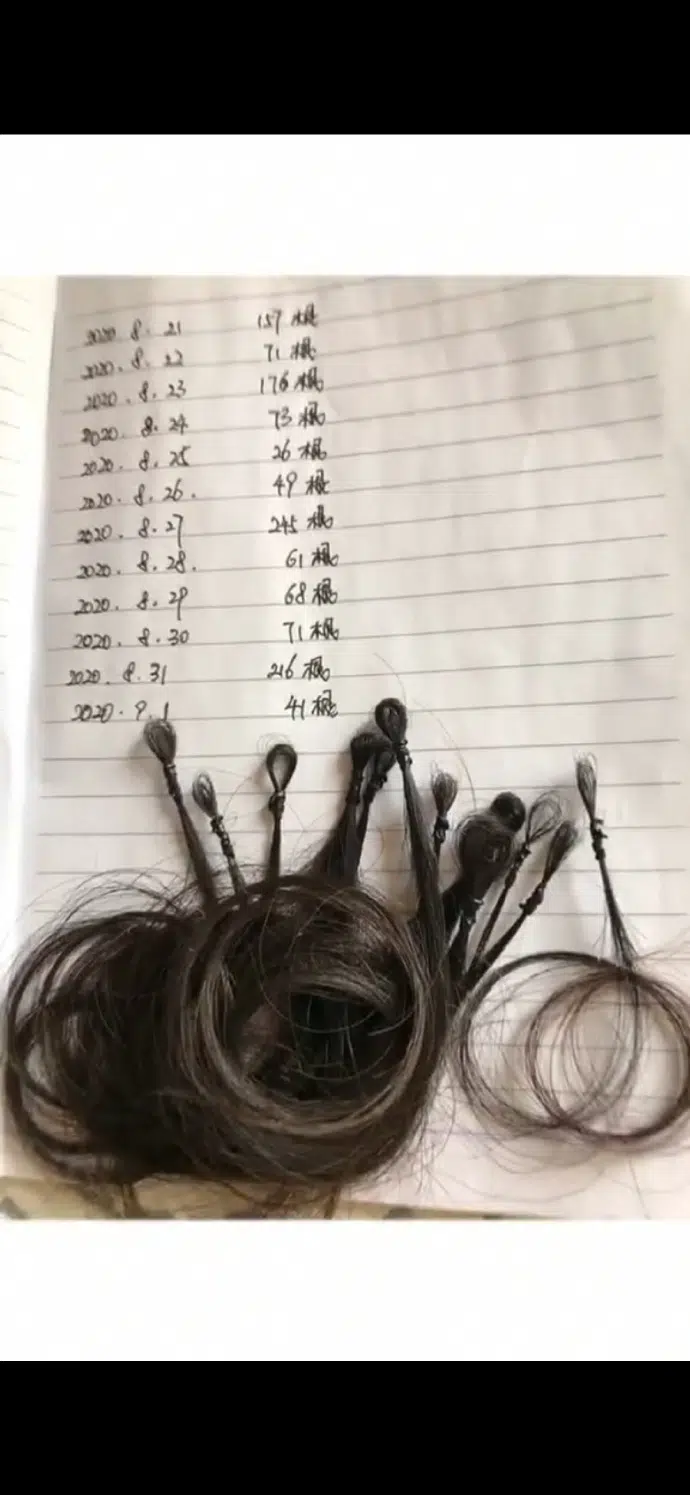 2020.8.21 157根
2020.8.22 71根
2020.8.23 176根
2020.8.24 73根
2020.8.25 26根
2020.8.26. 49根
2020.8.27 245根
2020.8.28. 61根
2020.8.29 68根
2020.8.30 71根
2020.8.31 216根
2020.9.1 41根